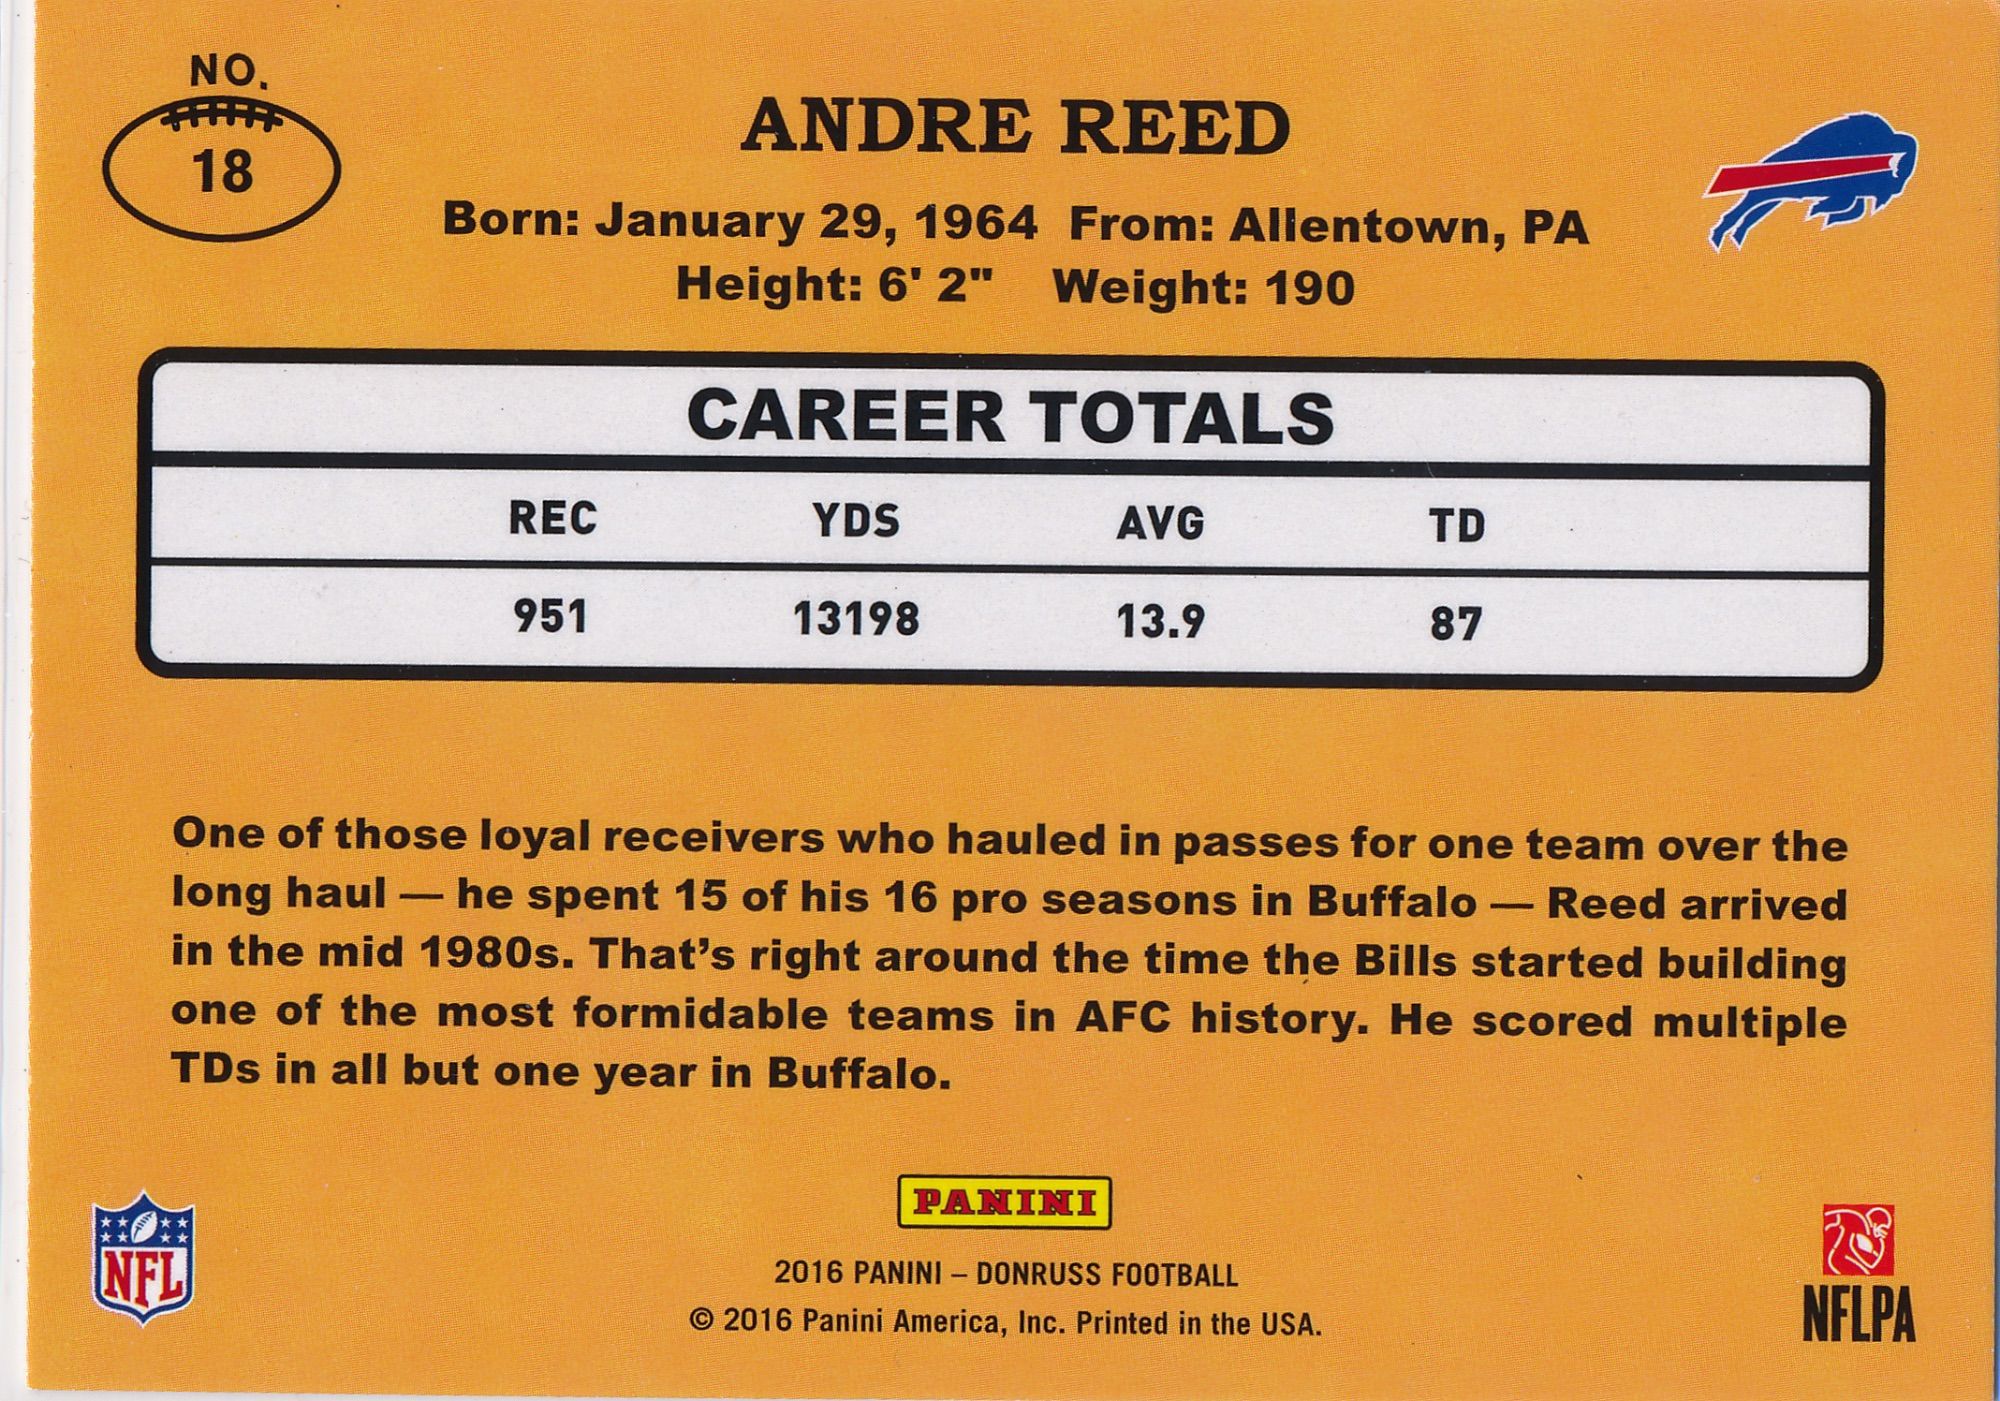 NO.
18
ANDRE REED
Born: January 29, 1964 From: Allentown, PA
Height: 6' 2" Weight: 190
CAREER TOTALS
REC YDS AVG TD
951 13198 13.9 87
One of those loyal receivers who hauled in passes for one team over the
long haul — he spent 15 of his 16 pro seasons in Buffalo — Reed arrived
in the mid 1980s. That's right around the time the Bills started building
one of the most formidable teams in AFC history. He scored multiple
TDs in all but one year in Buffalo.
PANINI
2016 PANINI – DONRUSS FOOTBALL
© 2016 Panini America, Inc. Printed in the USA.
NFL
NFLPA